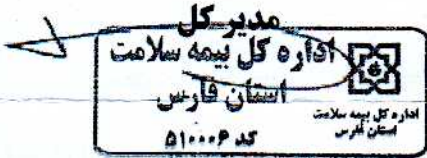 مدیر کل
اداره کل بیمه سلامت
استان فارس
کد ۵۱۰۰۰۶
اداره کل بیمه سلامت
استان فارس